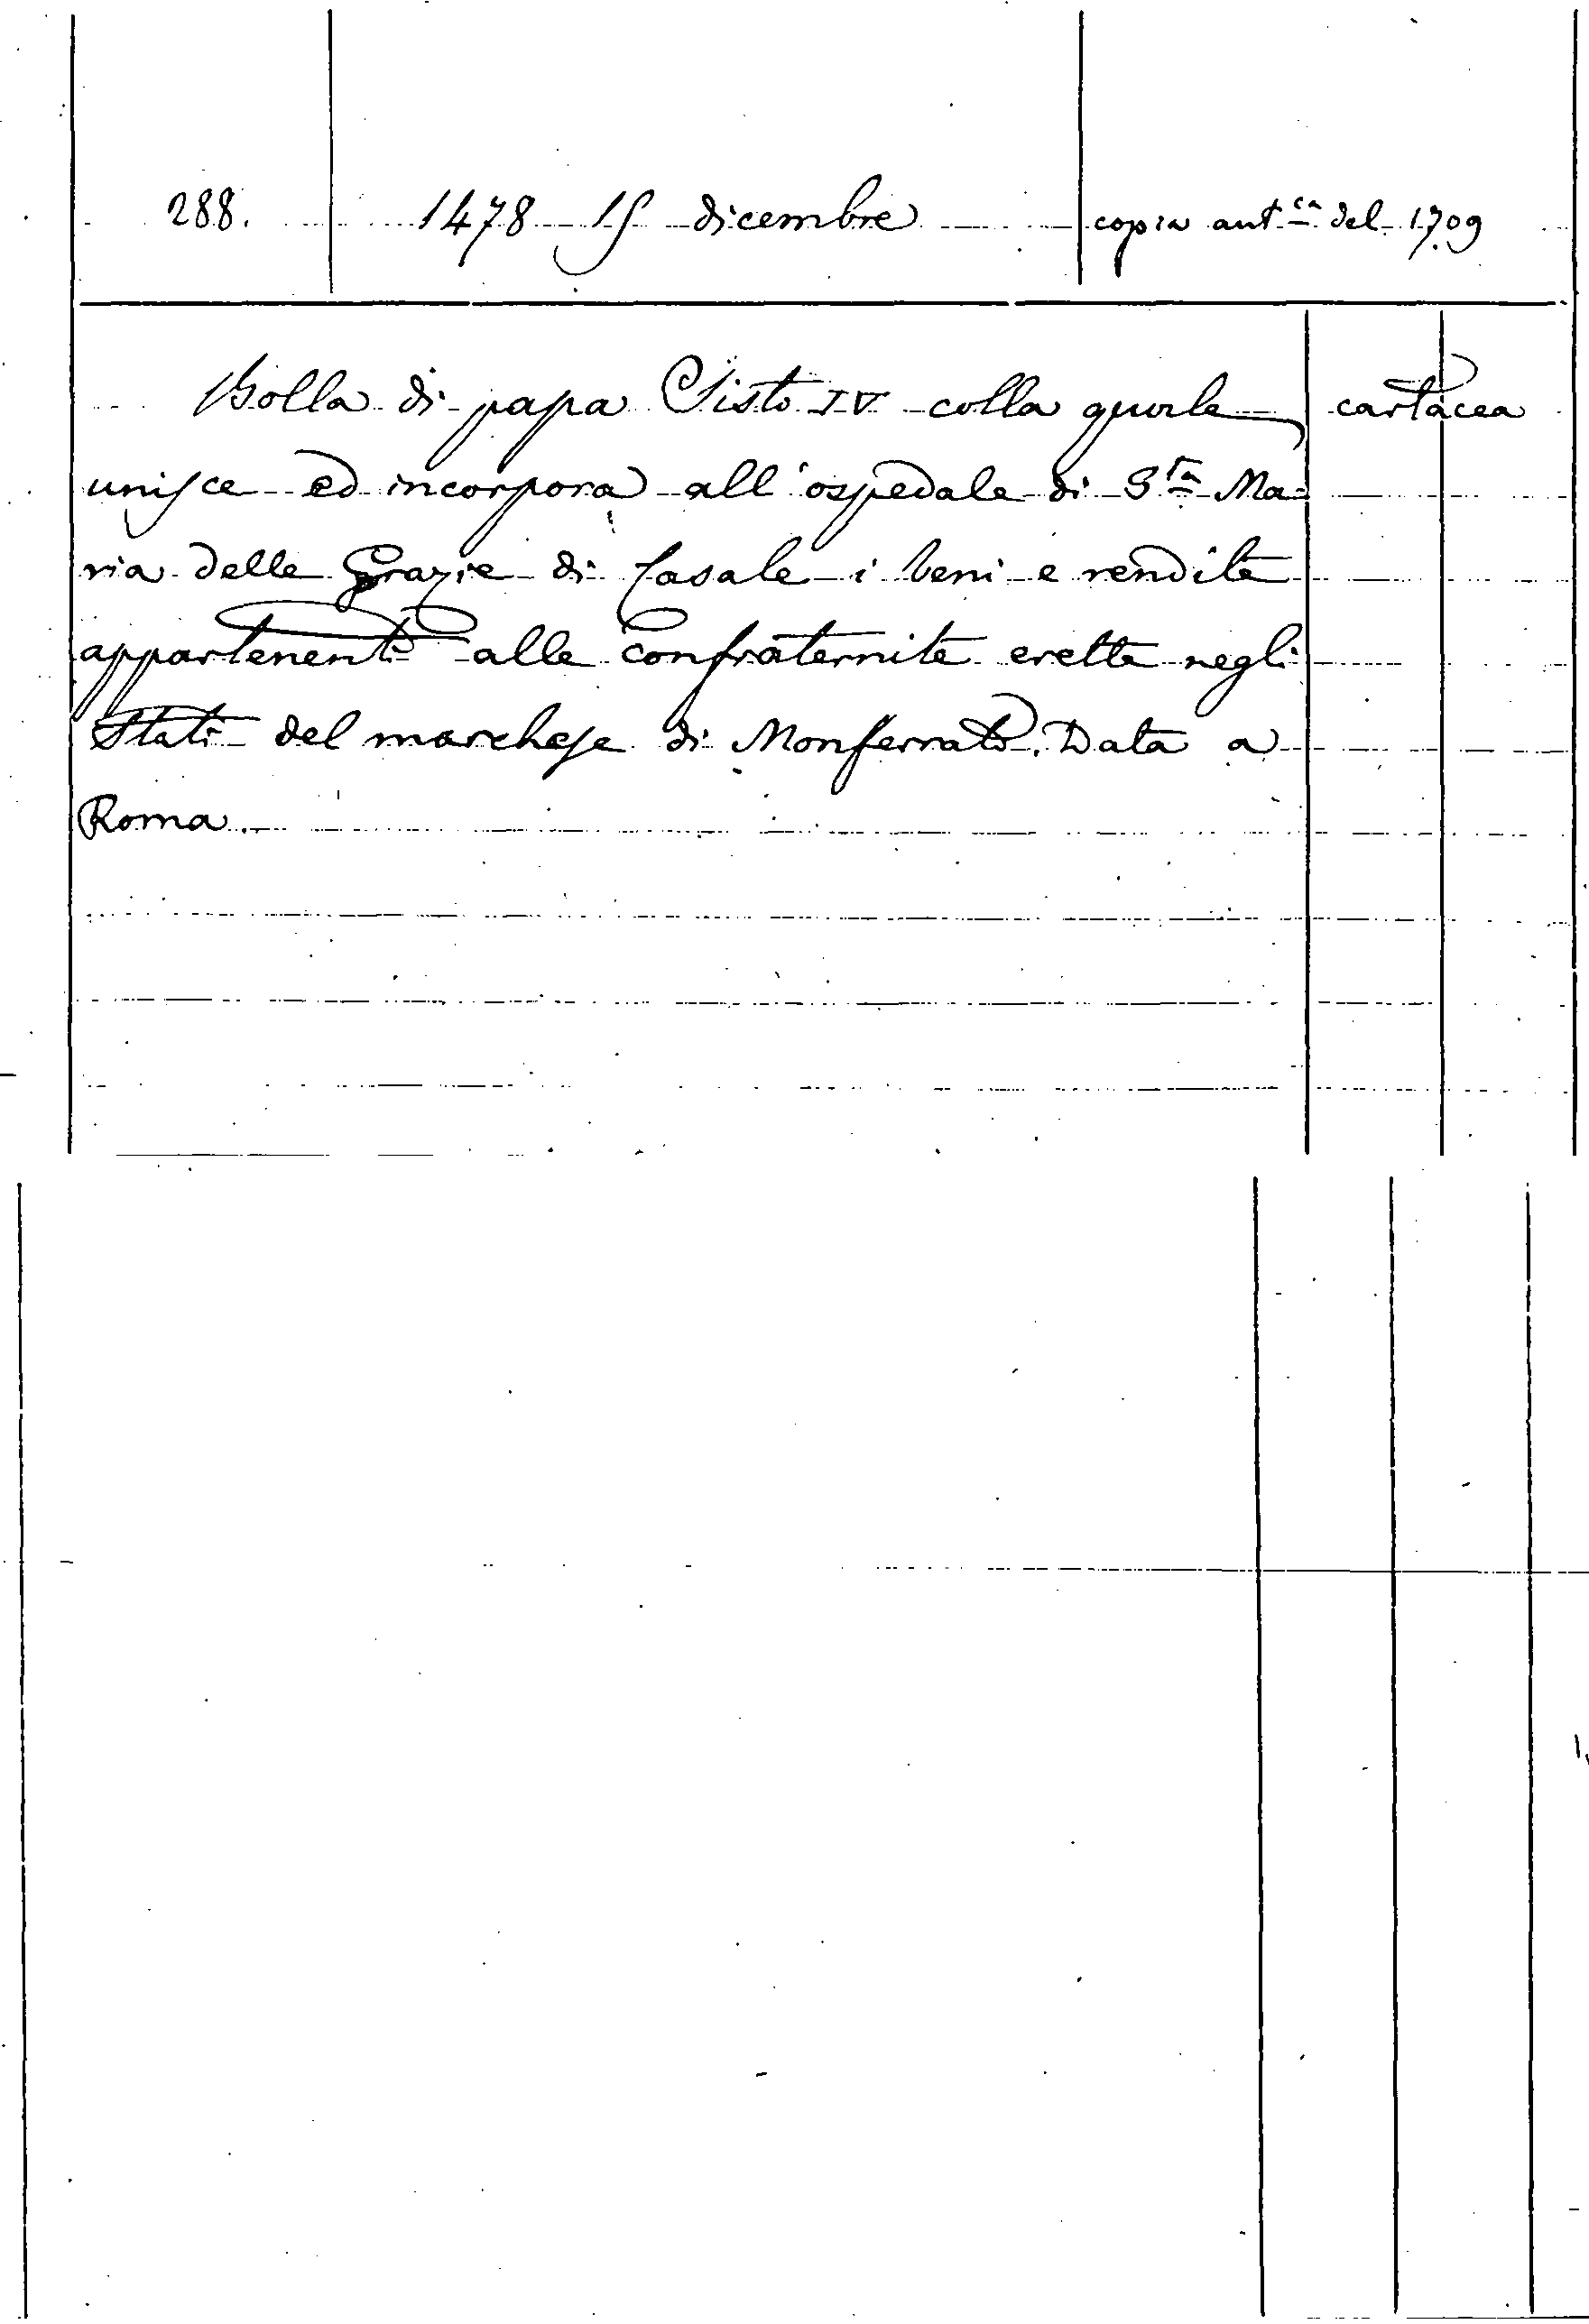 288. 1478 15 dicembre copia aut.ca del 1709
Bolla di papa Sisto IV colla quale cartacea
unisce ed incorpora all'ospedale di S.ta Ma=
ria delle Grazie di Casale i beni e rendite
appartenenti alle confraternite erette negli
Stati del marchese di Monferrato. Data a
Roma.